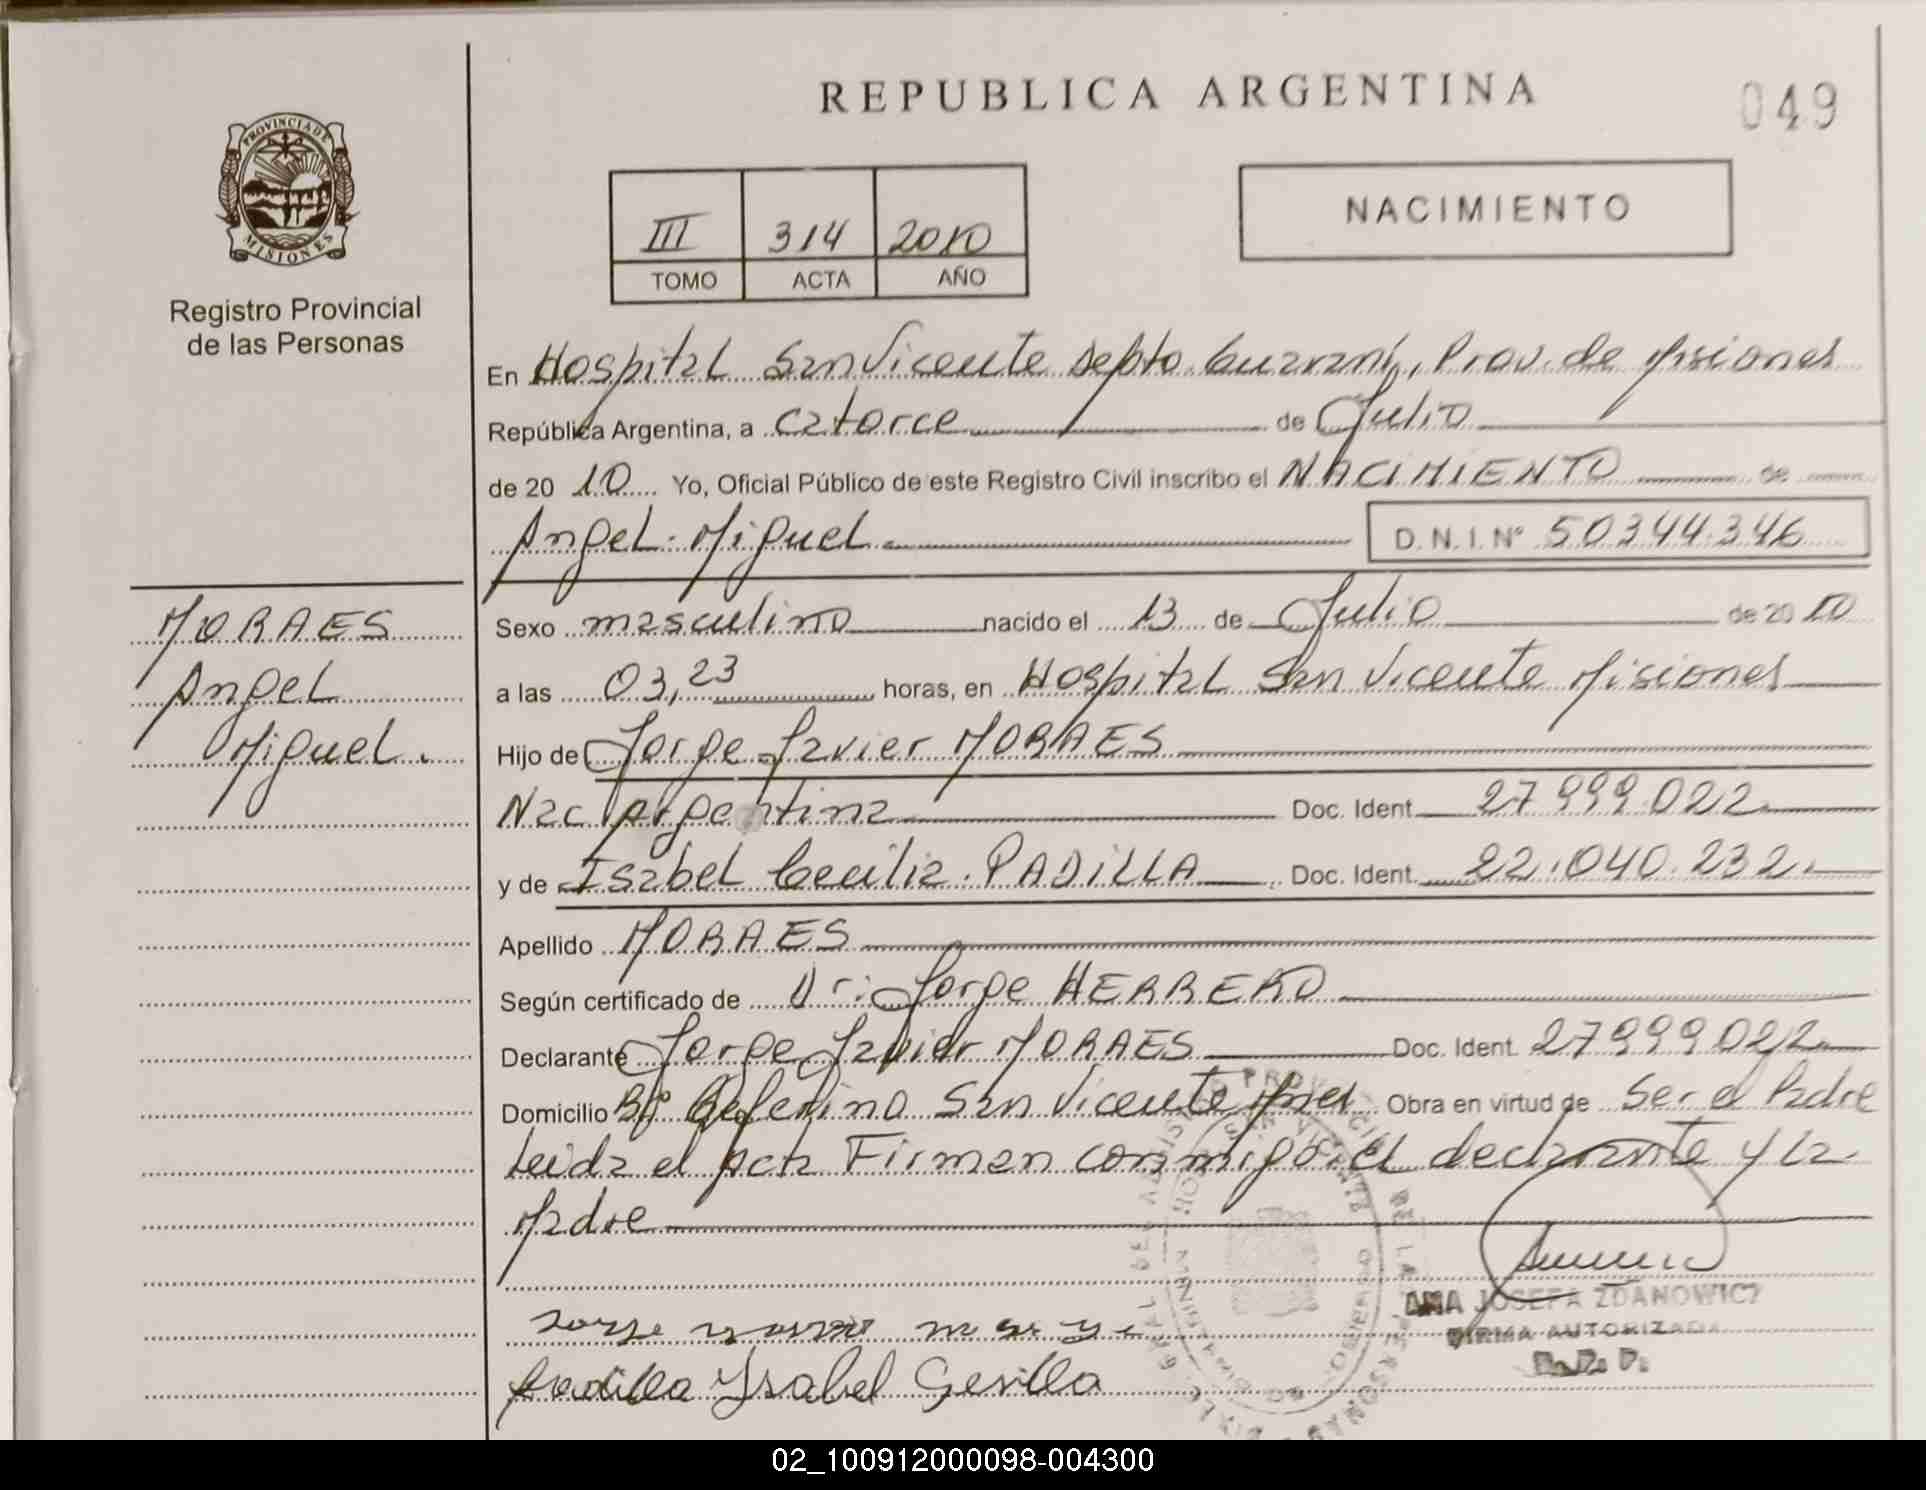 REPUBLICA ARGENTINA
049
PROVINCIA DE
MISIONES
Registro Provincial
de las Personas
III 314 2010
TOMO ACTA AÑO
NACIMIENTO
En Hospital San Vicente Depto Guaraní, Prov. de Misiones
República Argentina, a catorce de Julio
de 2010 Yo, Oficial Público de este Registro Civil inscribo el NACIMIENTO de
Angel Miguel D.N.I. Nº 50344346
MORAES
Angel
Miguel.
Sexo masculino nacido el 13 de Julio de 2010
a las 03,23 horas, en Hospital San Vicente Misiones
Hijo de Jorge Javier MORAES
Nac Argentina Doc. Ident. 27999.022
y de Isabel Cecilia. PADILLA Doc. Ident. 22.040.232.
Apellido MORAES
Según certificado de Dr: Jorge HERRERO
Declarante Jorge Javier MORAES Doc. Ident. 27999022
Domicilio Bº Ceferino San Vicente Mnes Obra en virtud de Ser el Padre
Leida el acta Firman conmigo el declarante y la
Madre
ANA JOSEFA ZDANOWICZ
FIRMA AUTORIZADA
R.P.P.
Padilla Ysabel
02_100912000098-004300